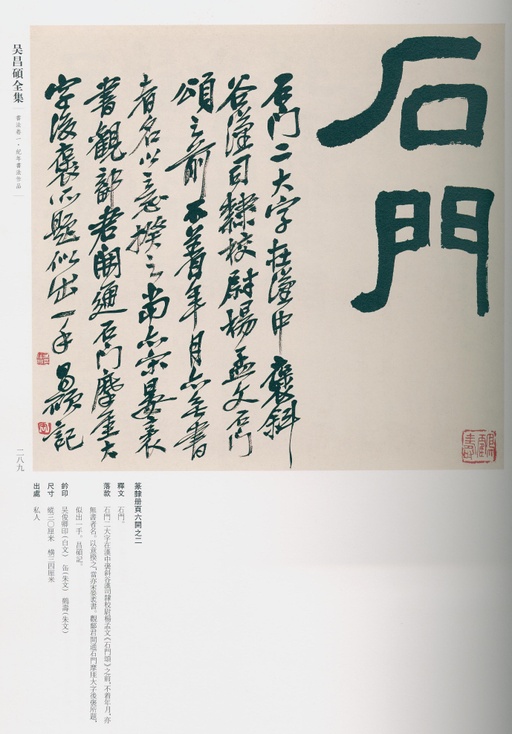 石門
石門二大字在漢中襃斜
谷漢司隸校尉楊孟文石門
頌之前不著年月亦無書
者名以意揆之當亦宋晏袤
書觀鄐君開通石門摩厓大
字後襃所題似出一手昌碩記
吴昌碩全集
書法卷一·紀年書法作品
二八九
篆隸册頁六開之二
釋文 石門。
落款 石門二大字在漢中襃斜谷漢司隸校尉楊孟文《石門頌》之前,不着年月,亦
無書者名,以意揆之,當亦宋晏袤書。觀鄐君開通石門摩厓大字後襃所題,
似出一手。昌碩記。
鈐印 吴俊卿印(白文) 缶(朱文) 鶴壽(朱文)
尺寸 縱三〇厘米 橫三四厘米
出處 私人